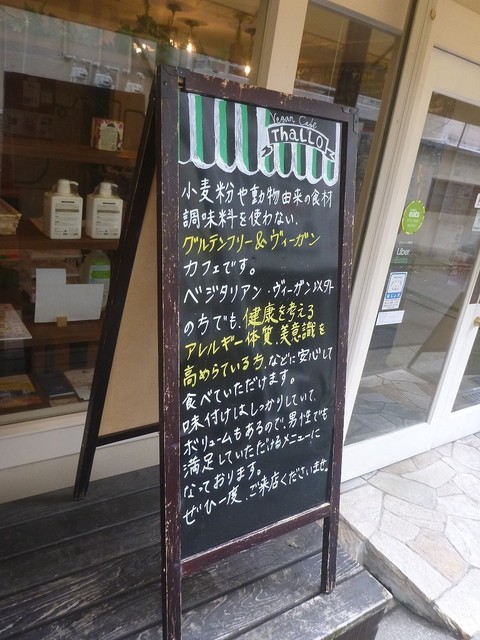 Vegan Cafe
ThaLLO
小麦粉や動物由来の食材
調味料を使わない、
グルテンフリー&ヴィーガン
カフェです。
ベジタリアン・ヴィーガン以外
の方でも、健康を考える
アレルギー体質、美意識を
高めらている方、などに安心して
食べていただけます。
味付けはしっかりしていて、
ボリュームもあるので、男性でも
満足していただけるメニューに
なっております。
ぜひ一度、ご来店くださいませ。
Uber